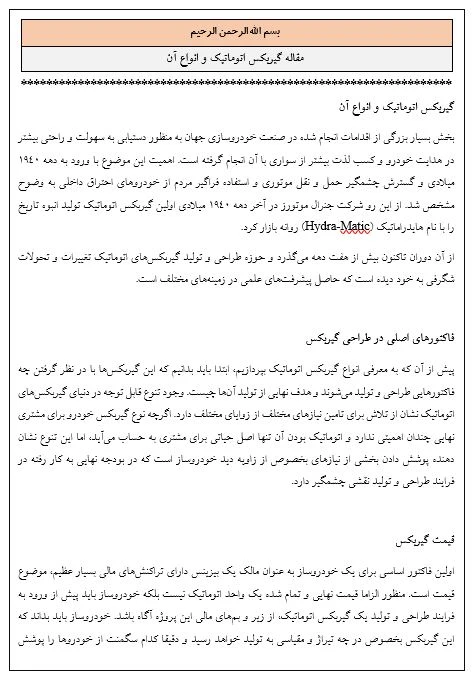 بسم الله الرحمن الرحیم
مقاله گیربکس اتوماتیک و انواع آن
**********************************************************************
گیربکس اتوماتیک و انواع آن
بخش بسیار بزرگی از اقدامات انجام شده در صنعت خودروسازی جهان به منظور دستیابی به سهولت و راحتی بیشتر
در هدایت خودرو و کسب لذت بیشتر از سواری با آن انجام گرفته است. اهمیت این موضوع با ورود به دهه ۱۹۴۰
میلادی و گسترش چشمگیر حمل و نقل موتوری و استفاده فراگیر مردم از خودروهای احتراق داخلی به وضوح
مشخص شد. از این رو شرکت جنرال موتورز در آخر دهه ۱۹۴۰ میلادی اولین گیربکس اتوماتیک تولید انبوه تاریخ
را با نام هایدراماتیک (Hydra-Matic) روانه بازار کرد.
از آن دوران تاکنون بیش از هفت دهه می‌گذرد و حوزه طراحی و تولید گیربکس‌های اتوماتیک تغییرات و تحولات
شگرفی به خود دیده است که حاصل پیشرفت‌های علمی در زمینه‌های مختلف است.
فاکتورهای اصلی در طراحی گیربکس
پیش از آن که به معرفی انواع گیربکس اتوماتیک بپردازیم، ابتدا باید بدانیم که این گیربکس‌ها با در نظر گرفتن چه
فاکتورهایی طراحی و تولید می‌شوند و هدف نهایی از تولید آن‌ها چیست. وجود تنوع قابل توجه در دنیای گیربکس‌های
اتوماتیک نشان از تلاش برای تامین نیازهای مختلف از زوایای مختلف دارد. اگرچه نوع گیربکس خودرو برای مشتری
نهایی چندان اهمیتی ندارد و اتوماتیک بودن آن تنها اصل حیاتی برای مشتری به حساب می‌آید، اما این تنوع نشان
دهنده پوشش دادن بخشی از نیازهای بخصوص از زاویه دید خودروساز است که در بودجه نهایی به کار رفته در
فرایند طراحی و تولید نقشی چشمگیر دارد.
قیمت گیربکس
اولین فاکتور اساسی برای یک خودروساز به عنوان مالک یک بیزینس دارای تراکنش‌های مالی بسیار عظیم، موضوع
قیمت است. منظور الزاما قیمت نهایی و تمام شده یک واحد اتوماتیک نیست بلکه خودروساز باید پیش از ورود به
فرایند طراحی و تولید یک گیربکس اتوماتیک، از زیر و بم‌های مالی این پروژه آگاه باشد. خودروساز باید بداند که
این گیربکس بخصوص در چه تیراژ و مقیاسی به تولید خواهد رسید و دقیقا کدام سگمنت از خودروها را پوشش